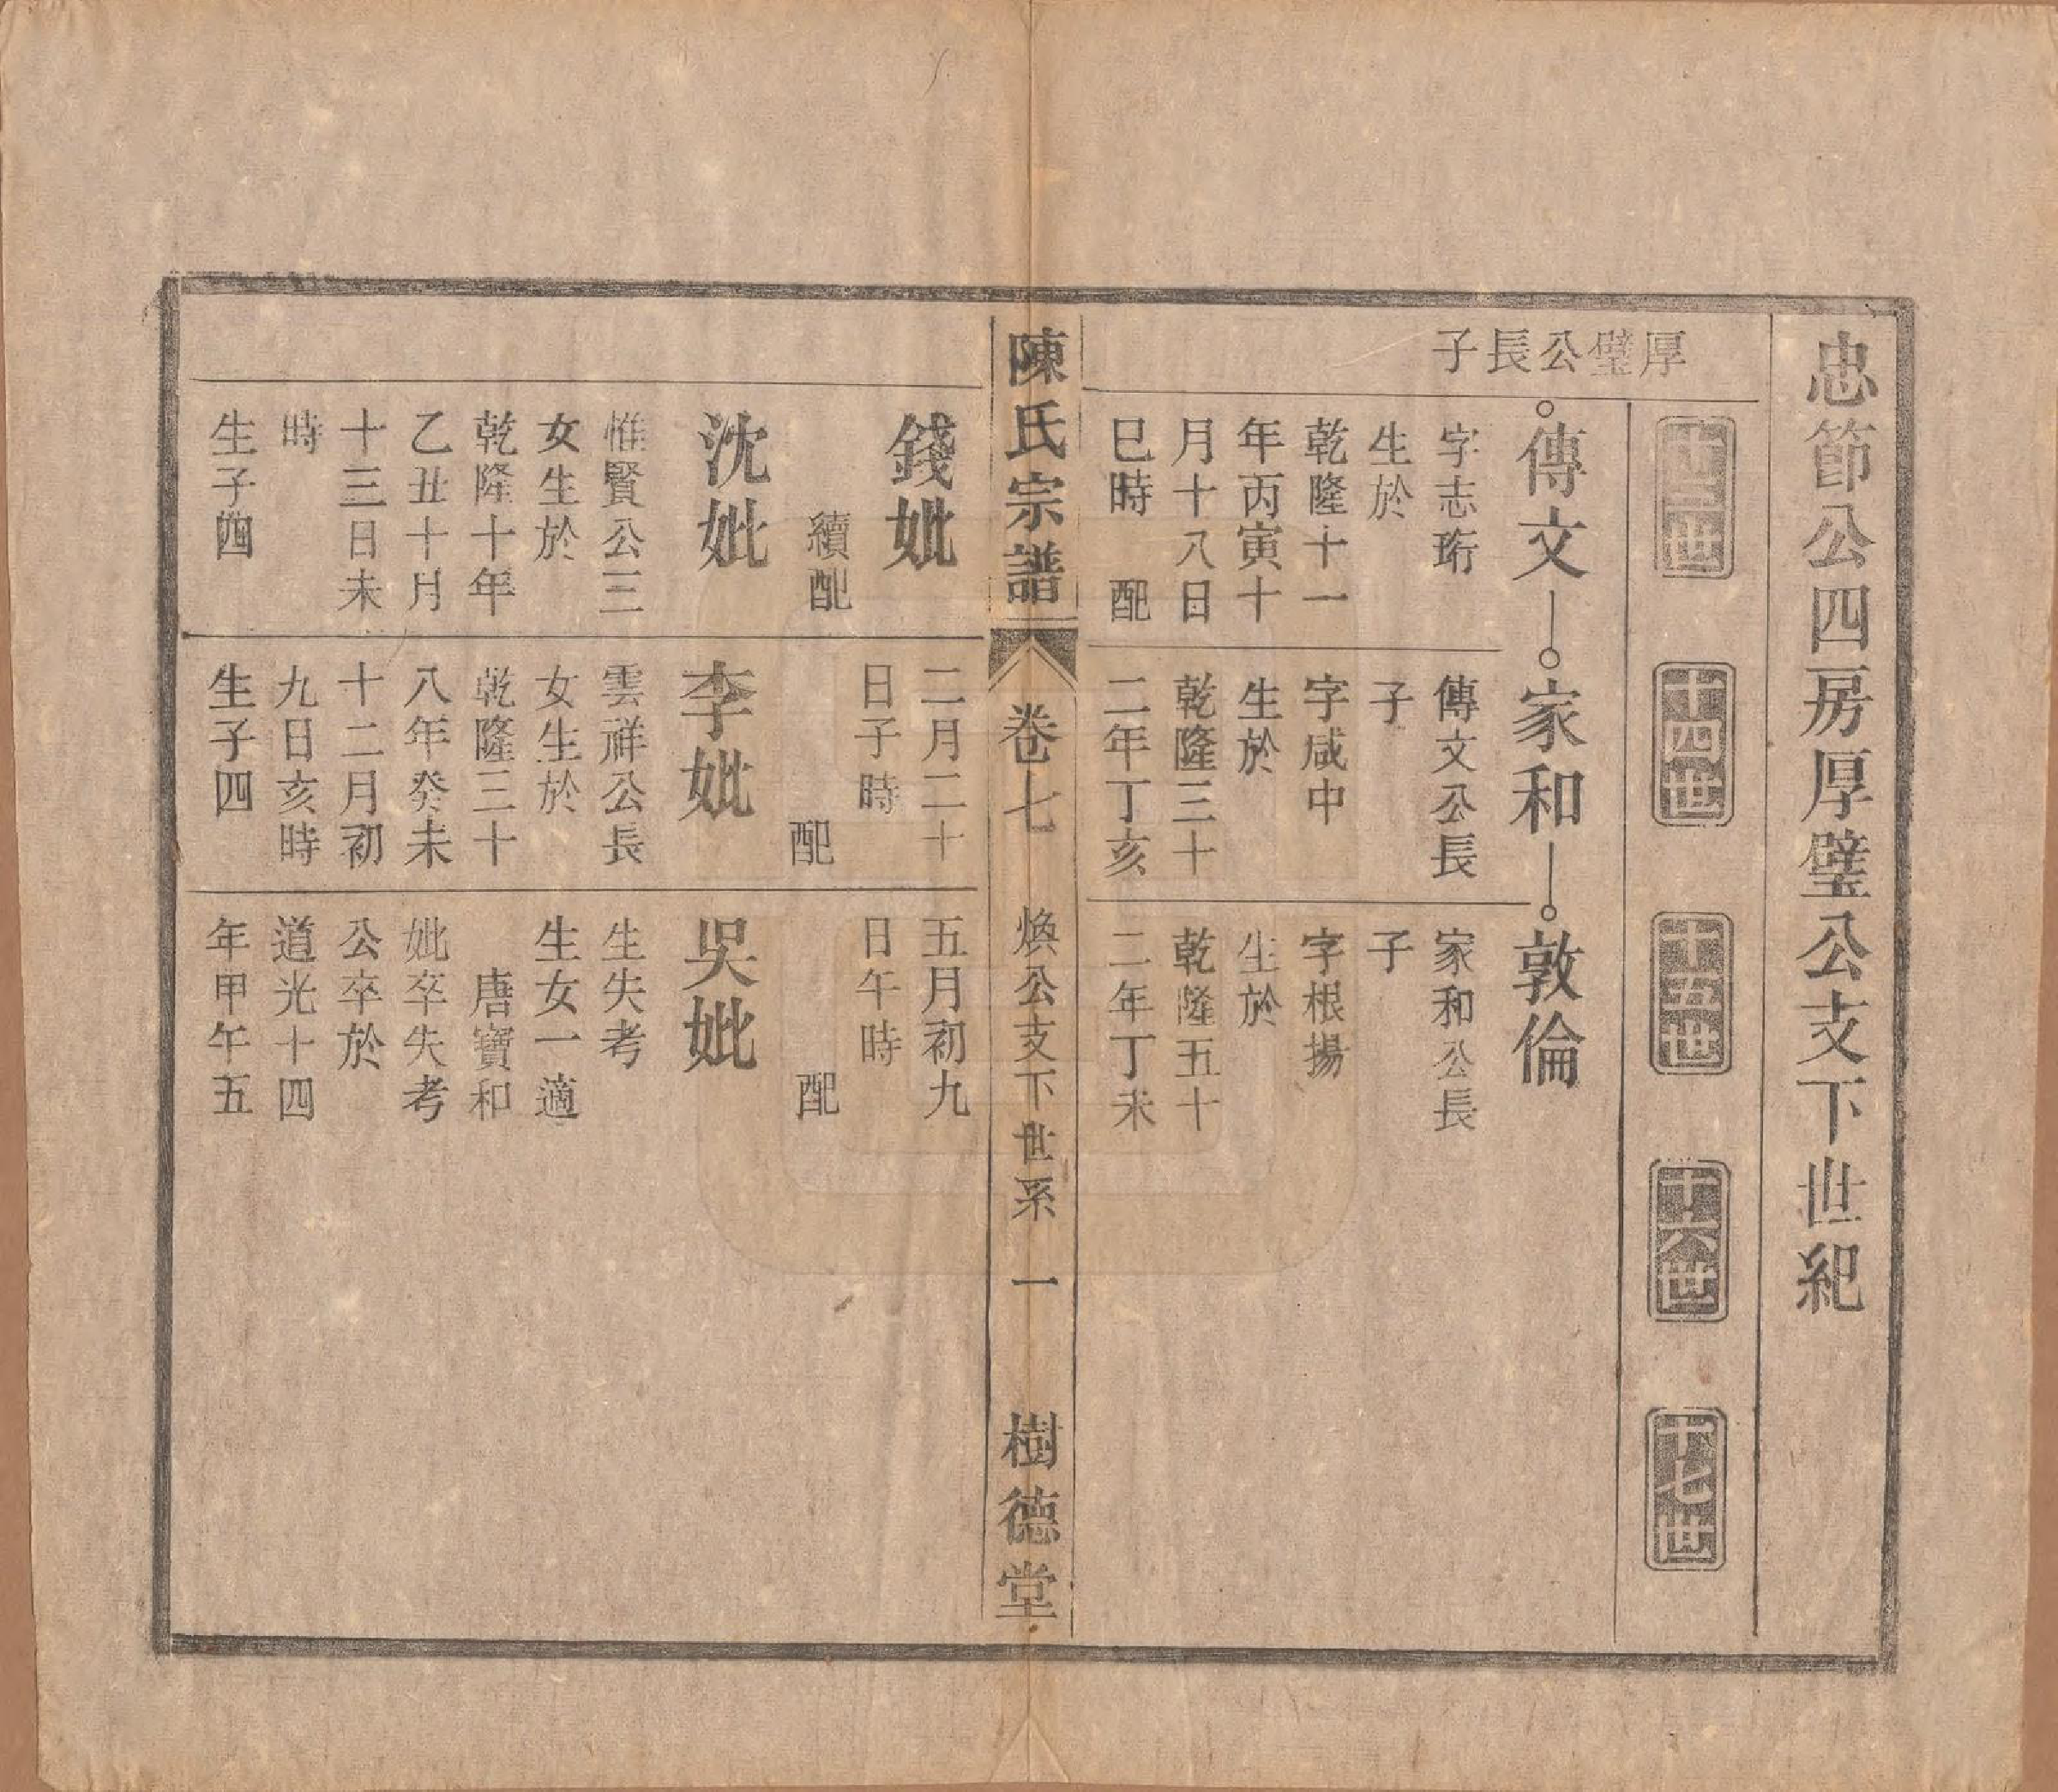 忠節公四房厚璧公支下世紀
十三世
十四世
十五世
十六世
十七世
厚璧公長子
傳文
字志珩
生於
乾隆十一
年丙寅十
月十八日
巳時　配
家和
傳文公長
子
字咸中
生於
乾隆三十
二年丁亥
敦倫
家和公長
子
字根揚
生於
乾隆五十
二年丁未
陳氏宗譜
卷七
煥公支下世系
一
樹德堂
錢妣
續配
沈妣
惟賢公三
女生於
乾隆十年
乙丑十月
十三日未
時
生子四
二月二十
日子時
配
李妣
雲祥公長
女生於
乾隆三十
八年癸未
十二月初
九日亥時
生子四
五月初九
日午時
配
吳妣
生失考
生女一適
唐寶和
妣卒失考
公卒於
道光十四
年甲午五